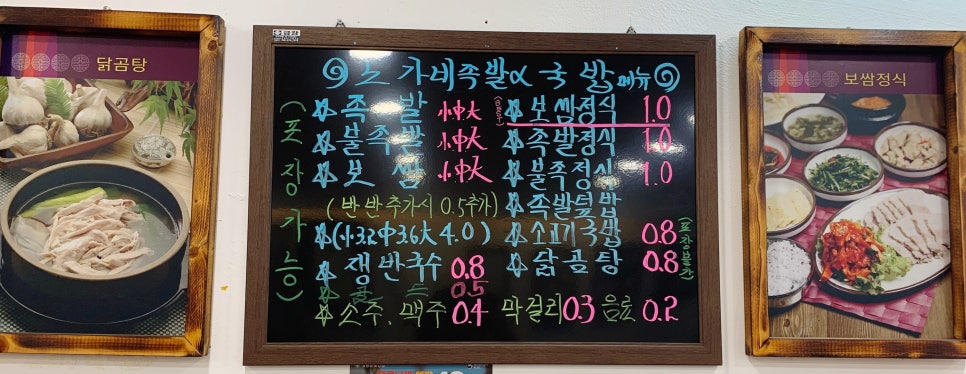 닭곰탕
노가네족발α국밥 메뉴
(포장가능)
족발 小中大
불족발 小中大
보쌈 小中大
(반반추가시 0.5추가)
(小3.2中3.6大4.0)
쟁반국수 0.8
0.5
소주, 맥주 0.4 막걸리 0.3 음료 0.2
보쌈정식 1.0
족발정식 1.0
불족정식 1.0
족발덮밥
소고기국밥 0.8
닭곰탕 0.8
(포장불가)
보쌈정식